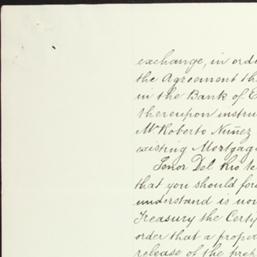 exchange, in ord
the Agreement th
in the Bank of E
thereupon instru
Mr Roberto Nuñez
existing Mortgag
Señor Del Rio te
that you should for
understand is now
Treasury the Certif
order that a prope
release of the prop